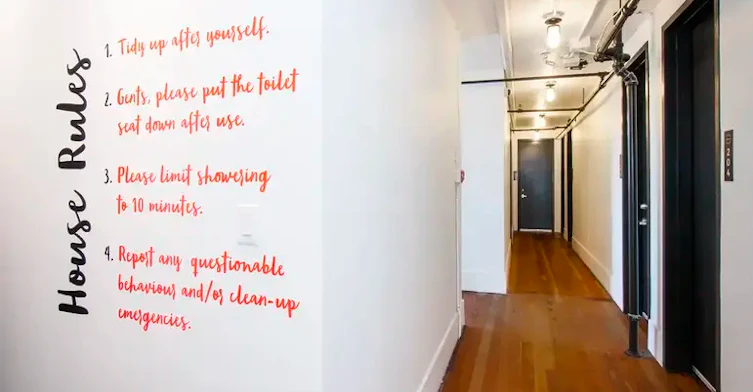 House Rules
1. Tidy up after yourself.
2. Gents, please put the toilet
seat down after use.
3. Please limit showering
to 10 minutes.
4. Report any questionable
behaviour and/or clean-up
emergencies.
204